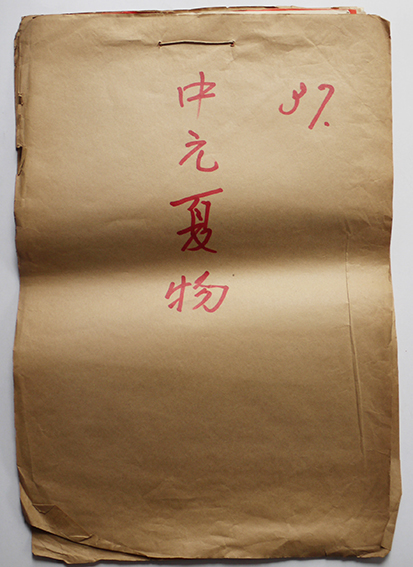 中元夏物
37.